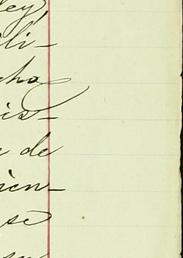 ley,
ili-
cha
is-
e de
ien-
se